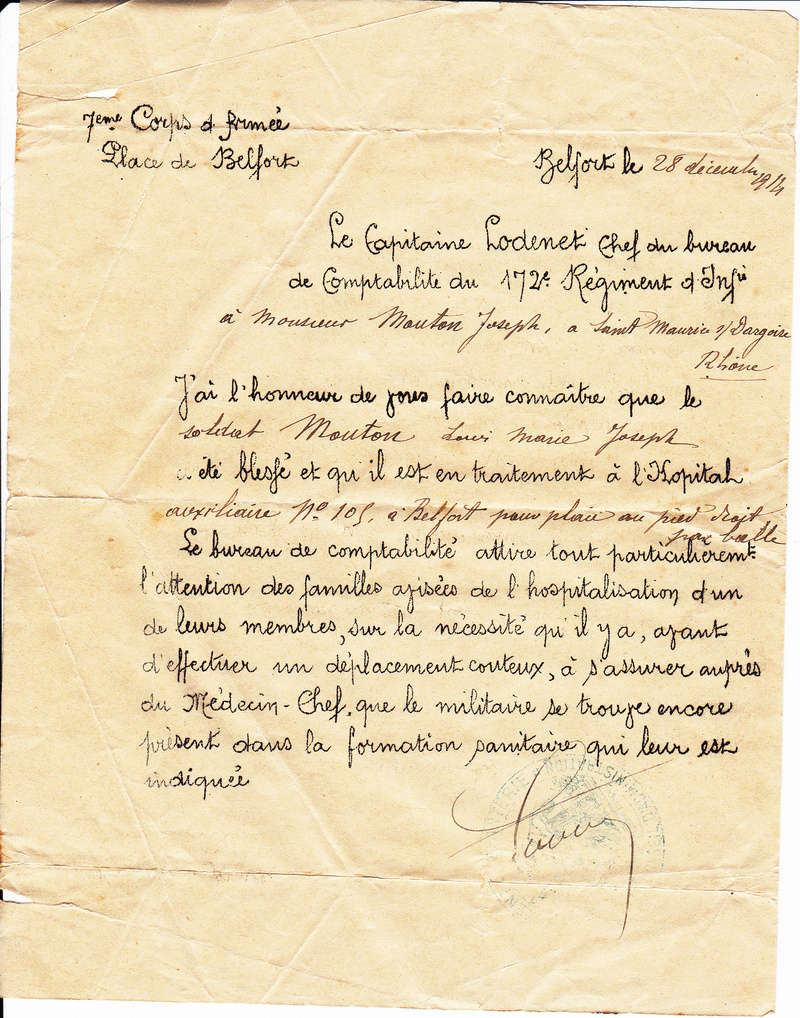 7eme Corps d'Armée
Place de Belfort
Belfort le 28 décembre 1914
Le Capitaine Lodenet Chef du bureau
de Comptabilité du 172e Régiment d'Infie
à Monsieur Mouton Joseph, a Saint Maurice s/ Dargoire
Rhône
J'ai l'honneur de vous faire connaître que le
soldat Mouton Louis Marie Joseph
a été blessé et qu'il est en traitement à l'Hopital
auxiliaire No 105, à Belfort pour plaie au pied droit
par balle
Le bureau de comptabilité attire tout particulièremt
l'attention des familles avisées de l'hospitalisation d'un
de leurs membres, sur la nécessité qu'il y a, avant
d'effectuer un déplacement couteux, à s'assurer auprès
du Médecin-Chef, que le militaire se trouve encore
présent dans la formation sanitaire qui leur est
indiquée